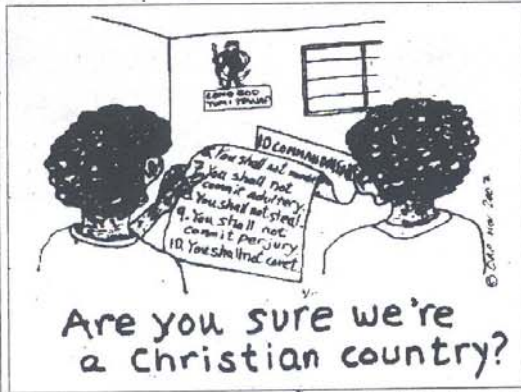 LONG GOD
YUMI STANAP
10 COMMANDMENTS
You shall not murder
7. You shall not
commit adultery.
You shall not steal.
9. You shall not
commit perjury
10. You shall not covet
© CAP NOV 2007
Are you sure we're
a Christian country?